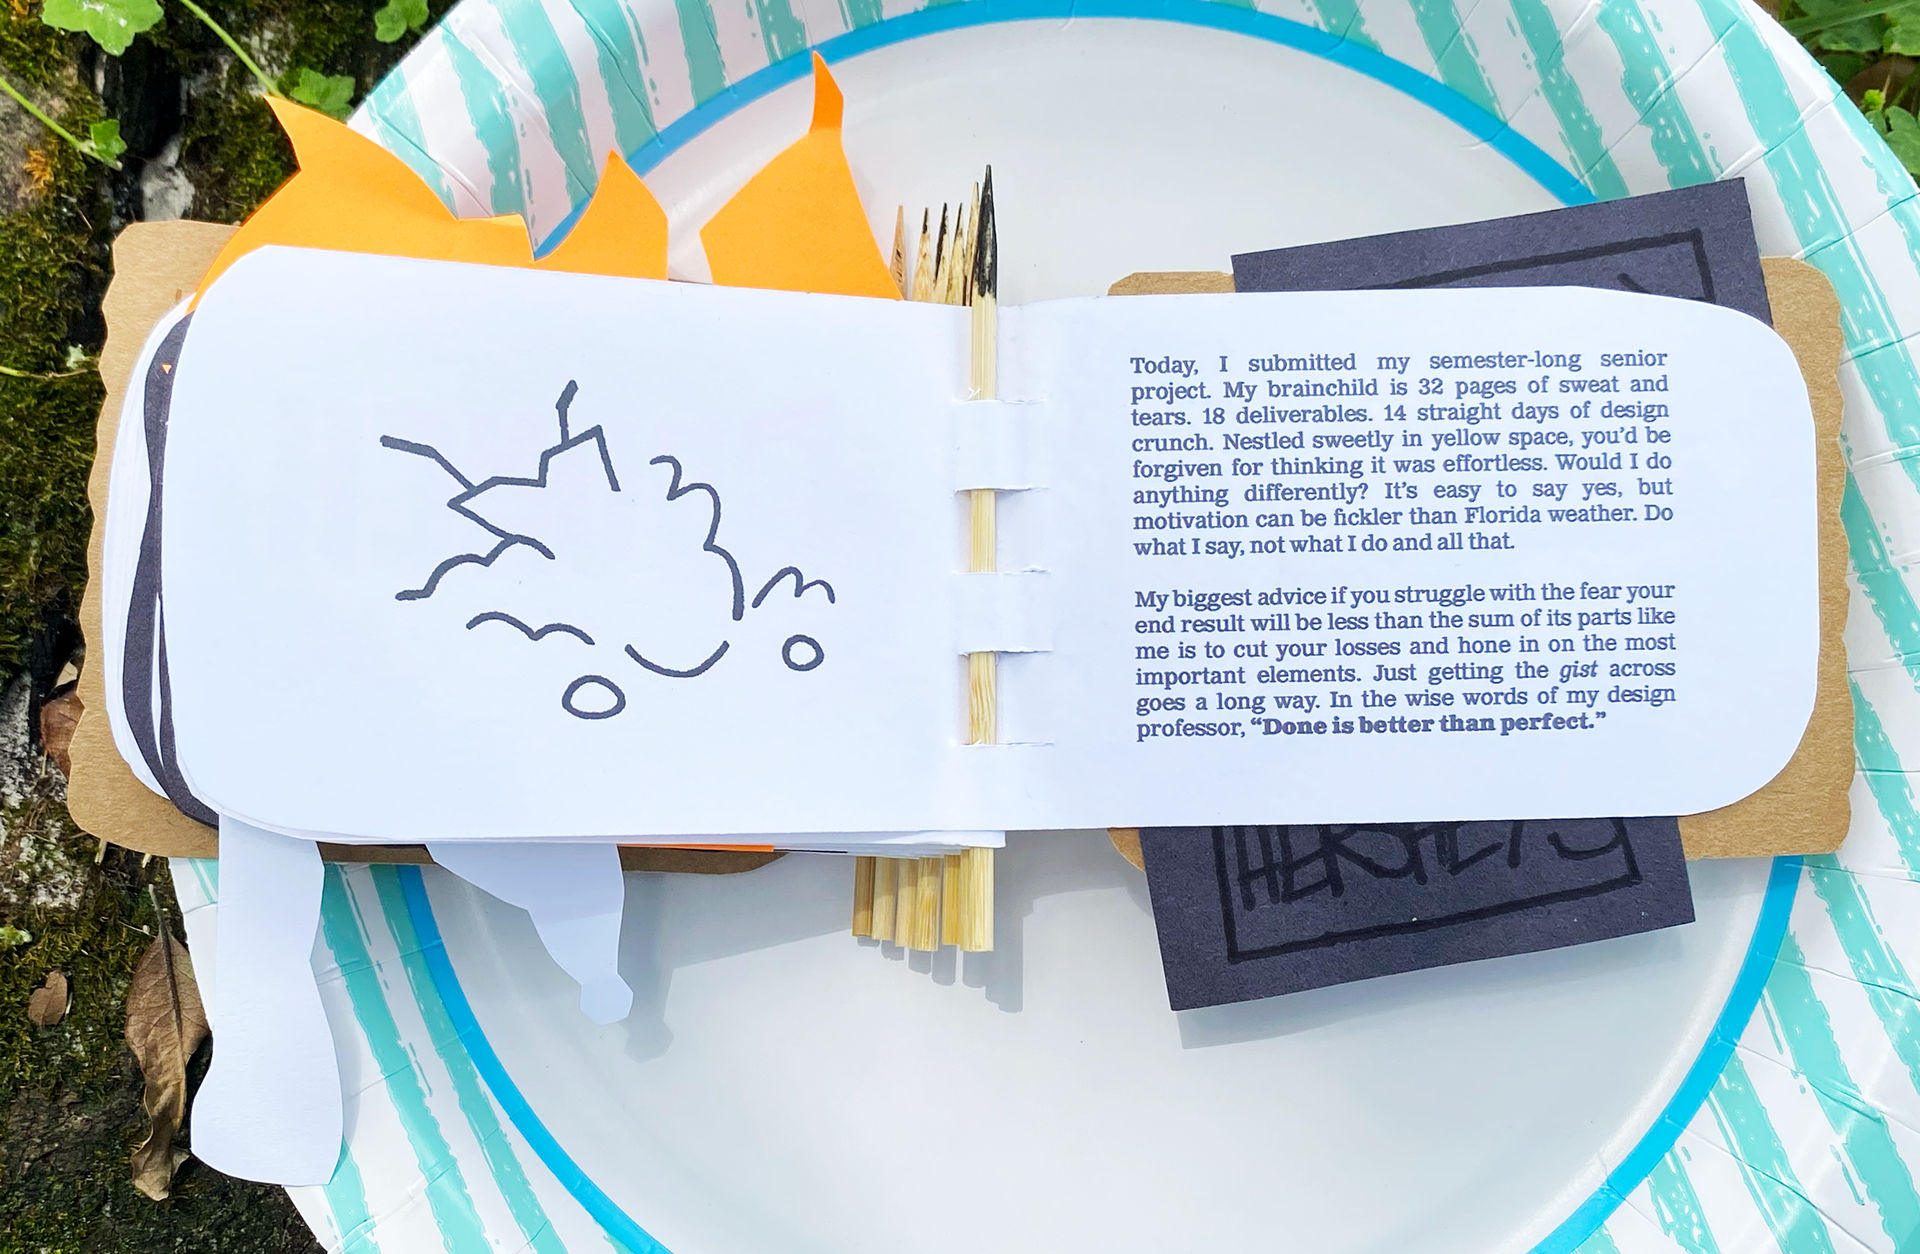 Today, I submitted my semester-long senior
project. My brainchild is 32 pages of sweat and
tears. 18 deliverables. 14 straight days of design
crunch. Nestled sweetly in yellow space, you'd be
forgiven for thinking it was effortless. Would I do
anything differently? It's easy to say yes, but
motivation can be fickler than Florida weather. Do
what I say, not what I do and all that.
My biggest advice if you struggle with the fear your
end result will be less than the sum of its parts like
me is to cut your losses and hone in on the most
important elements. Just getting the gist across
goes a long way. In the wise words of my design
professor, “Done is better than perfect.”
HERSHEY'S